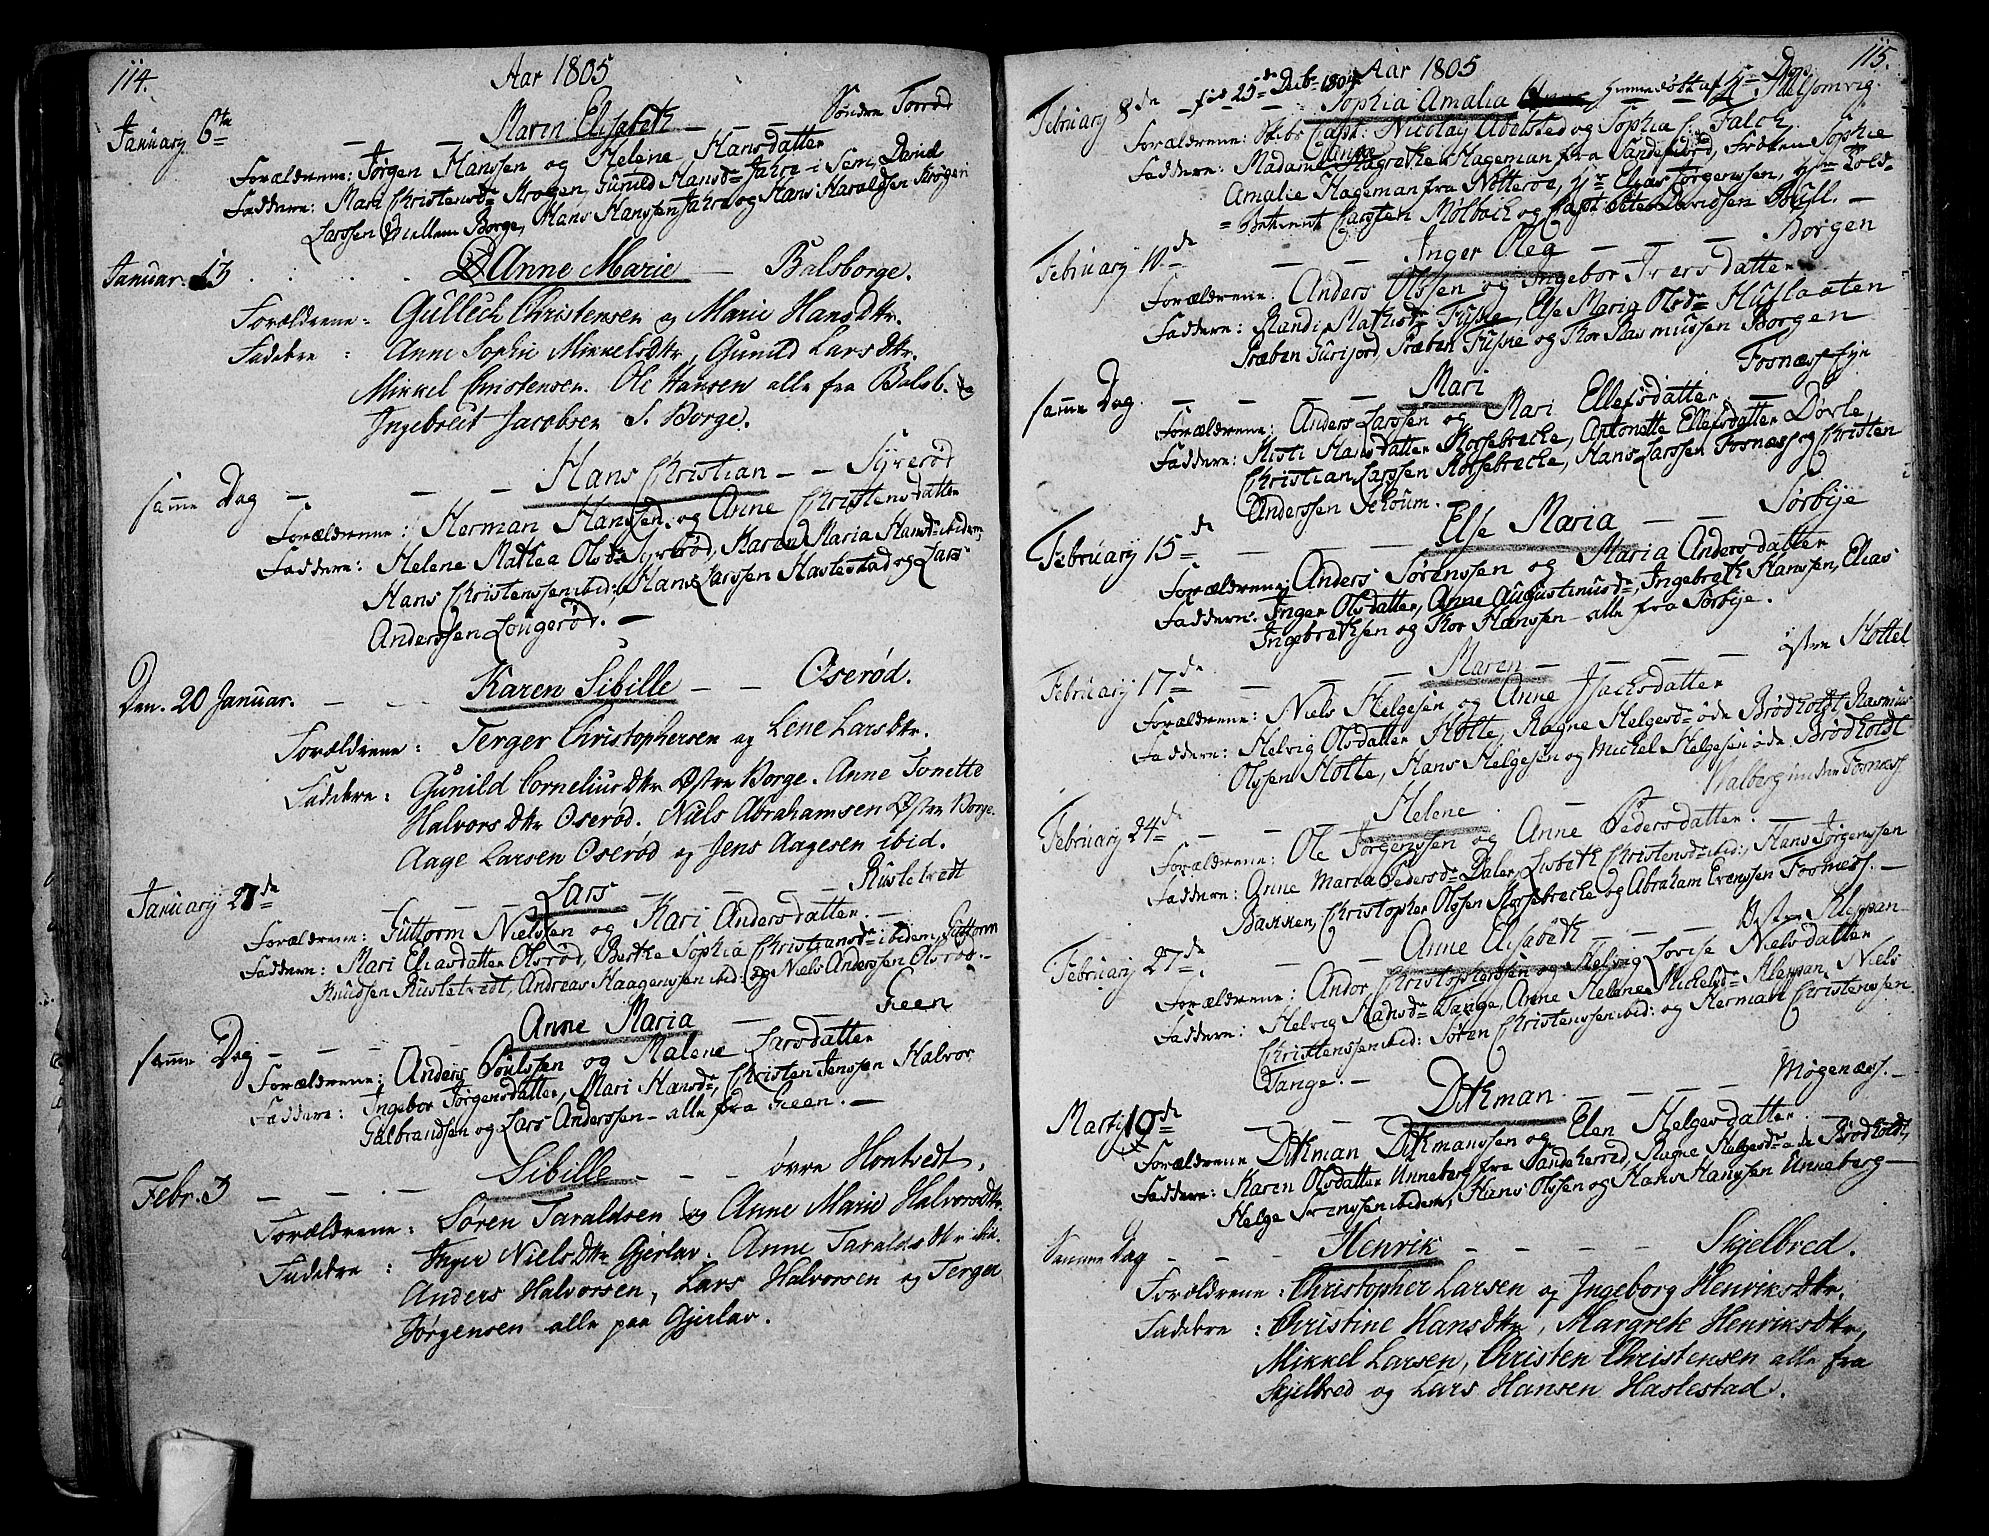 114.
Aar 1805
January 6te Maren Elisabeth Søndre Torrød
Forældrene: Jørgen Hanssen og Helene Hansdatter
Faddere: Mari Christensd: Skogen, Gunild Hansd: Jahre i Sem, David
Larssen Mellem Borge, Hans Hanssen Jahre og Hans Haraldsen Skogen
Januar: 13 Anne Marie Balsborge.
Forældrene: Gullech Christensen og Marie Hansdtr.
Faddere: Anne Sophie Mikkelsdtr, Gunild Larsdtr.
Mikkel Christensen. Ole Hansen alle fra Balsb. og
Ingebreit Jacobsen S. Borge.
samme Dag Hans Christian Syrerød
Forældrene: Herman Hanssen og Anne Christensdatter
Faddere: Helene Mathea Olsd: Syrerød, Karen Maria Hansd: ibidem,
Hans Christenssen ibid:, Hans Larssen Haslestad og Lars
Anderssen Lougerød.
Den 20 Januar. Karen Sibille Oserød.
Forældrene: Terger Christophersen og Lene Larsdtr.
Faddere: Gunild Corneliusdtr Østre Borge. Anne Tonette
Halvorsdtr Oserød. Niels Abrahamsen Østre Borge.
Aage Larsen Oserød og Jens Aagesen ibid.
January 27de Lars Rustetvedt
Forældrene: Guttorm Nielsen og Kari Andersdatter
Faddere: Mari Eliasdatter Olsrød, Berthe Sophia Christiansd: ibidem, Guttorm
Knudsen Rustetvedt, Andreas Haagenssen ibid: og Niels Anderssen Olsrød.
samme Dag Anne Maria Geen
Forældrene: Anders Poulssen og Malene Larsdatter
Faddere: Ingebor Jørgensdatter, Mari Hansd:, Christen Jenssen Halvor
Gulbrandsen og Lars Anderssen alle fra Geen.
Febr. 3 Sibille øvre Hontvedt,
Forældrene: Søren Taraldsen og Anne Marie Halvorsdtr.
Faddere: Inger Nielsdtr Gjerlav. Anne Taraldsdtr ibid.
Anders Halvorsen, Lars Halvorsen og Terger
Jørgensen alle paa Gjerlav.
115.
Aar 1805
February 8de fød 25de Decbr 1804 Sophia Amalia hiemmedøbt af Hr Dop Melsomvig.
Forældrene: Skibs Capt: Nicolay Abelsted og Sophia C: Falck
Faddere: Madame Anne Magrethe Hageman fra Sandefiord, Frøken Sophie
Amalie Hageman fra Nøtterøe, Hr Elias Jørgenssen, Hr Told-
Betient Carsten Mølbach og Capt: Peter Davidsen Bull.
February 10de Inger Olea Borgen
Forældrene: Anders Olssen og Ingebor Iversdatter
Faddere: Randi Mathisd: Fuske, Else Maria Olsd: Huslaaten
Præben Gurijord, Præben Fuske og Thor Rasmussen Borgen
samme Dag Mari Fosnæss Eje
Forældrene: Anders Larssen og Mari Ellefsdatter
Faddere: Kisti Hansdatter Korsebrecke, Antonette Ellefsdatter Døvle,
Christian Larssen Korsebrecke, Hans Larssen Fosnæss og Christen
Anderssen Schoum.
February 15de Else Maria Sørbye
Forældrene: Anders Sørenssen og Maria Andersdatter
Faddere: Inger Olsdatter, Anne Augustinusd:, Ingebreth Hanssen, Elias
Ingebrethsen og Thor Hanssen alle fra Sørbye.
February 17de Maren østre Holtet
Forældrene: Niels Helgesen og Anne Isachsdatter
Faddere: Helvig Olsdatter Holte, Ragne Helgesd: øde Brødholdt, Rasmus
Olssen Holte, Hans Helgesen og Michel Helgesen øde Brødholdt
February 24de Helene Walberg under Fornæss
Forældrene: Ole Jørgenssen og Anne Pedersdatter.
Faddere: Anne Maria Pedersd: Daler, Lisbeth Christensd: ibid:, Hans Jørgenssen
Bakken, Christopher Olssen Korsebrecke og Abraham Evenssen Fosnæss.
February 27de Anne Elisabeth Vestre Kleppan
Forældrene: Andor Christopherssen og Helvig Lovise Nielsdatter
Faddere: Helvig Hansd: Tange, Anne Helene Michelsd: Kleppan, Niels
Christenssen ibid: Søren Christenssen ibid: og Herman Christenssen
Tange.
Marty 10de Ditman Møgenæss.
Forældrene Ditman Ditmanssen og Elen Helgesdatter
Faddere: Karen Olsdatter Unneberg fra Sandeherred, Ragne Helgesd: øde Brødholdt,
Helge ibidem, Hans Olssen og Hans Hanssen Unneberg
Samme Dag Henrik Skjelbred.
Forældrene: Christopher Larsen og Ingeborg Henriksdtr.
Faddere: Christine Hansdtr, Margrete Henriksdtr,
Mikkel Larsen, Christen Christensen alle fra
Skjelbred og Lars Hansen Haslestad.